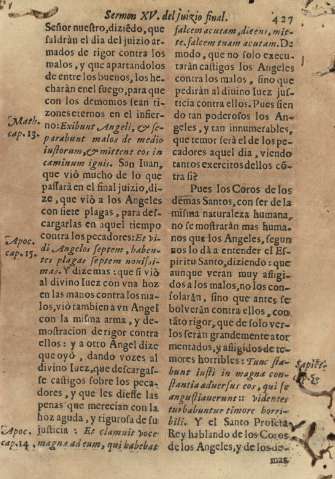 Sermon XV. del juizio final.
427
Señor nuestro, diziẽdo, que
saldrán el dia del juizio ar-
mados de rigor contra los
malos, y que apartandolos
de entre los buenos, los he-
charán en el fuego, para que
con los demonios sean ti-
zones eternos en el infier-
no: Exibunt Angeli, & se-
parabunt malos de medio
iustorum, & mittent eos in
caminum ignis. San Iuan,
que vió mucho de lo que
passará en el final juizio, di-
ze, que vió a los Angeles
con siete plagas, para des-
cargarlas en aquel tiempo
contra los pecadores: Et vi-
di Angelos septem, haben-
tes plagas septem nouissi-
mas. Y dize mas: que si vió
al divino Iuez con vna hoz
en las manos contra los ma-
los, vió tambien a vn Angel
con la misma arma, y de-
mostracion de rigor contra
ellos: y a otro Angel dize
que oyó, dando vozes al
divino Iuez, que descargas-
se castigos sobre los peca-
dores, y que les diesse las
penas que merecian con la
hoz aguda, y rigurosa de su
justicia: Et clamauit voce
magna ad eum, qui habebat
Math.
cap. 13.
Apoc.
cap. 15.
Apoc.
cap. 14.
falcem acutam, dicens, mit-
te, falcem tuam acutam. De
modo, que no solo execu-
tarán castigos los Angeles
contra los malos, sino que
pedirán al divino Iuez jus-
ticia contra ellos. Pues sien
do tan poderosos los An-
geles, y tan innumerables,
que temor será el de los pe-
cadores aquel dia, viendo
tantos exercitos dellos cõ-
tra si?
Pues los Coros de los
demas Santos, con ser de la
misma naturaleza humana,
no se mostrarán mas huma-
nos que los Angeles, segun
nos lo dá a entender el Es-
piritu Santo, diziendo: que
aunque veran muy afligi-
dos a los malos, no los con-
solarán, sino que antes se
bolverán contra ellos, con
tãto rigor, que de solo ver-
los serán grandemente ator
mentados, y afligidos de te-
mores horribles: Tunc sta-
bunt iusti in magna con-
stantia aduersus eos, qui se
angustiauerunt: videntes
turbabuntur timore horri-
bili. Y el Santo Profeta
Rey hablando de los Coros
de los Angeles, y de los de-
mas
Sapiẽ.